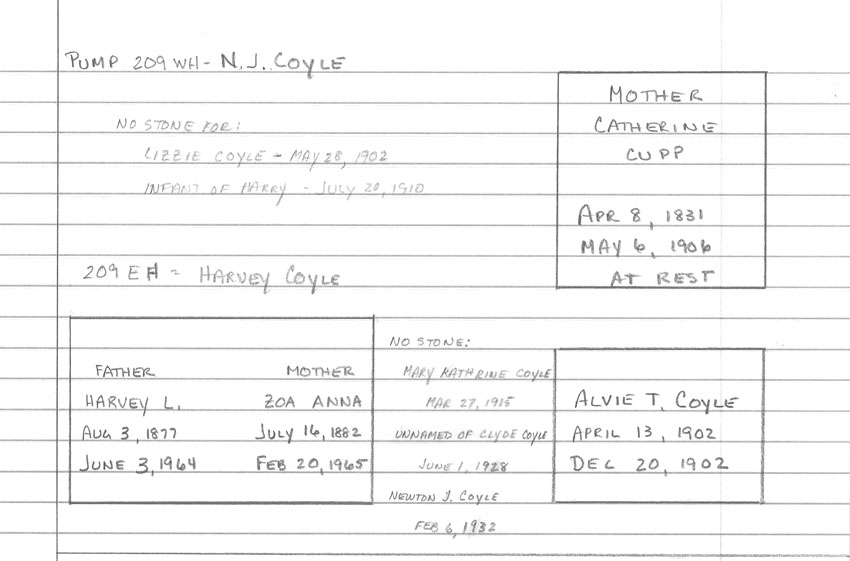 PUMP 209 WH - N. J. COYLE
MOTHER
CATHERINE
CUPP
APR 8, 1831
MAY 6, 1906
AT REST
NO STONE FOR:
LIZZIE COYLE - MAY 28, 1902
INFANT OF HARRY - JULY 20, 1910
209 EH = HARVEY COYLE
FATHER MOTHER
HARVEY L. ZOA ANNA
AUG 3, 1877 JULY 16, 1882
JUNE 3, 1964 FEB 20, 1965
NO STONE:
MARY KATHRINE COYLE
MAR 27, 1915
UNNAMED OF CLYDE COYLE
JUNE 1, 1928
NEWTON J. COYLE
FEB 6, 1932
ALVIE T. COYLE
APRIL 13, 1902
DEC 20, 1902